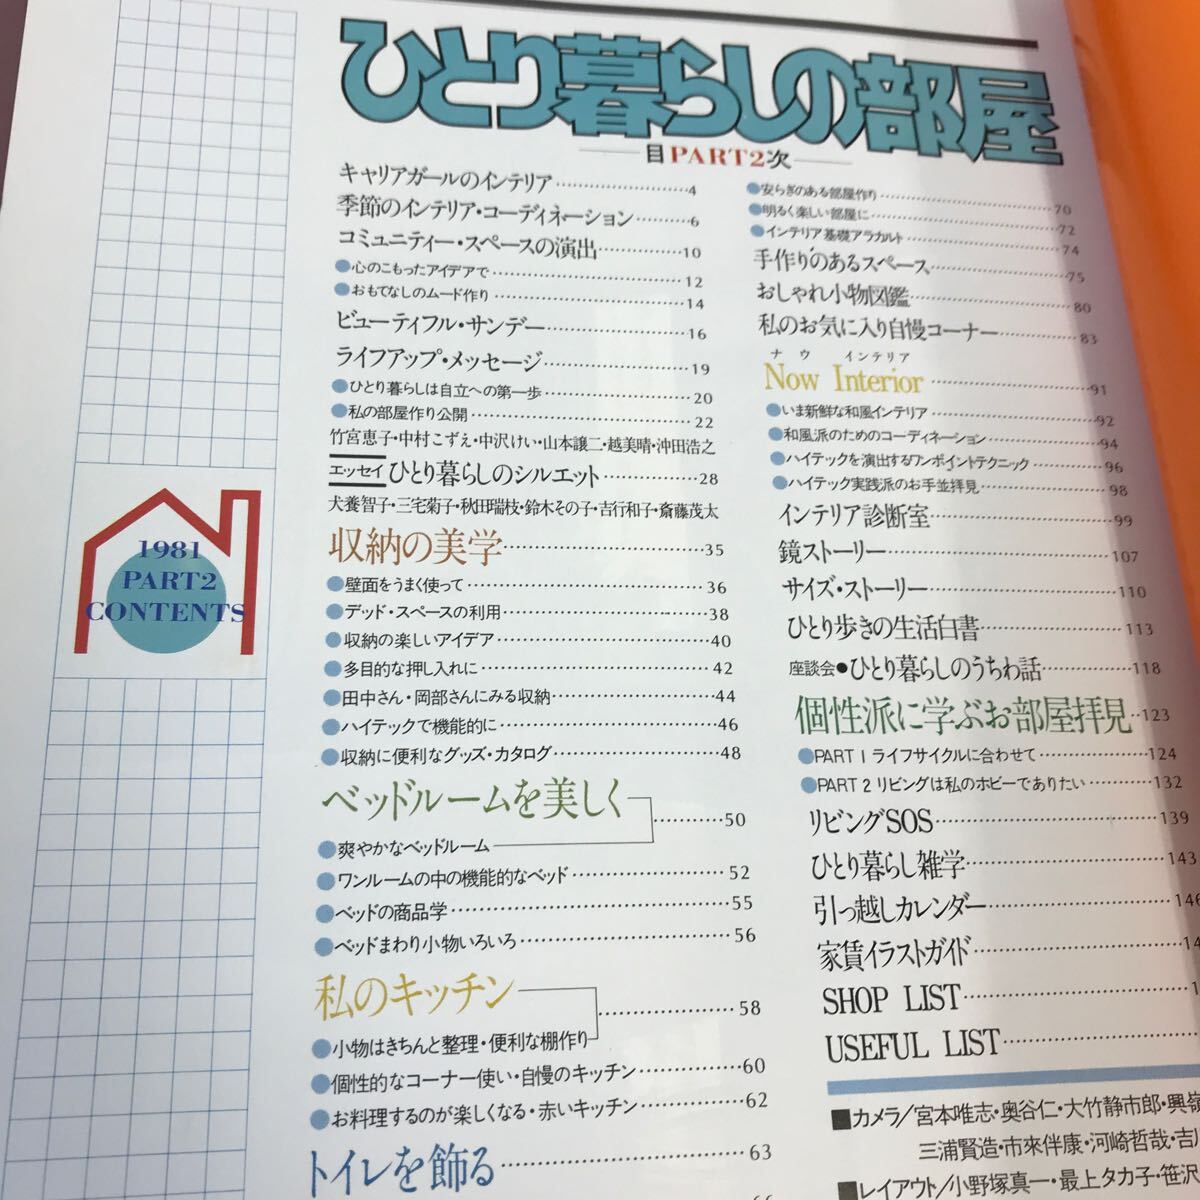 ひとり暮らしの部屋
目PART2次
1981
PART2
CONTENTS
キャリアガールのインテリア……………4
季節のインテリア・コーディネーション………6
コミュニティー・スペースの演出………10
●心のこもったアイデアで……………………12
●おもてなしのムード作り……………………14
ビューティフル・サンデー……………16
ライフアップ・メッセージ……………19
●ひとり暮らしは自立への第一歩……………20
●私の部屋作り公開……………………22
竹宮恵子・中村こずえ・中沢けい・山本譲二・越美晴・沖田浩之
エッセイ ひとり暮らしのシルエット…………28
犬養智子・三宅菊子・秋田瑞枝・鈴木その子・吉行和子・斎藤茂太
収納の美学……………………35
●壁面をうまく使って……………………36
●デッド・スペースの利用……………………38
●収納の楽しいアイデア……………………40
●多目的な押し入れに……………………42
●田中さん・岡部さんにみる収納……………44
●ハイテックで機能的に……………………46
●収納に便利なグッズ・カタログ……………48
ベッドルームを美しく…………50
●爽やかなベッドルーム
●ワンルームの中の機能的なベッド……………52
●ベッドの商品学……………………55
●ベッドまわり小物いろいろ……………………56
私のキッチン……………58
●小物はきちんと整理・便利な棚作り
●個性的なコーナー使い・自慢のキッチン…………60
●お料理するのが楽しくなる・赤いキッチン…………62
トイレを飾る……………………63
●安らぎのある部屋作り……………………70
●明るく楽しい部屋に……………………72
●インテリア基礎アラカルト……………………74
手作りのあるスペース……………75
おしゃれ小物図鑑……………80
私のお気に入り自慢コーナー…………83
ナウ インテリア
Now Interior……………91
●いま新鮮な和風インテリア……………………92
●和風派のためのコーディネーション……………94
●ハイテックを演出するワンポイントテクニック…………96
●ハイテック実践派のお手並拝見……………98
インテリア診断室……………………99
鏡ストーリー……………………107
サイズ・ストーリー……………………110
ひとり歩きの生活白書……………113
座談会●ひとり暮らしのうちわ話…………118
個性派に学ぶお部屋拝見…123
●PART 1 ライフサイクルに合わせて……………124
●PART 2 リビングは私のホビーでありたい…………132
リビングSOS……………………139
ひとり暮らし雑学……………………143
引っ越しカレンダー……………………146
家賃イラストガイド……………………
SHOP LIST……………………
USEFUL LIST……………………
■カメラ/宮本唯志・奥谷仁・大竹静市郎・興嶺
三浦賢造・市來伴康・河崎哲哉・吉川
■レイアウト/小野塚真一・最上タカ子・笹沢